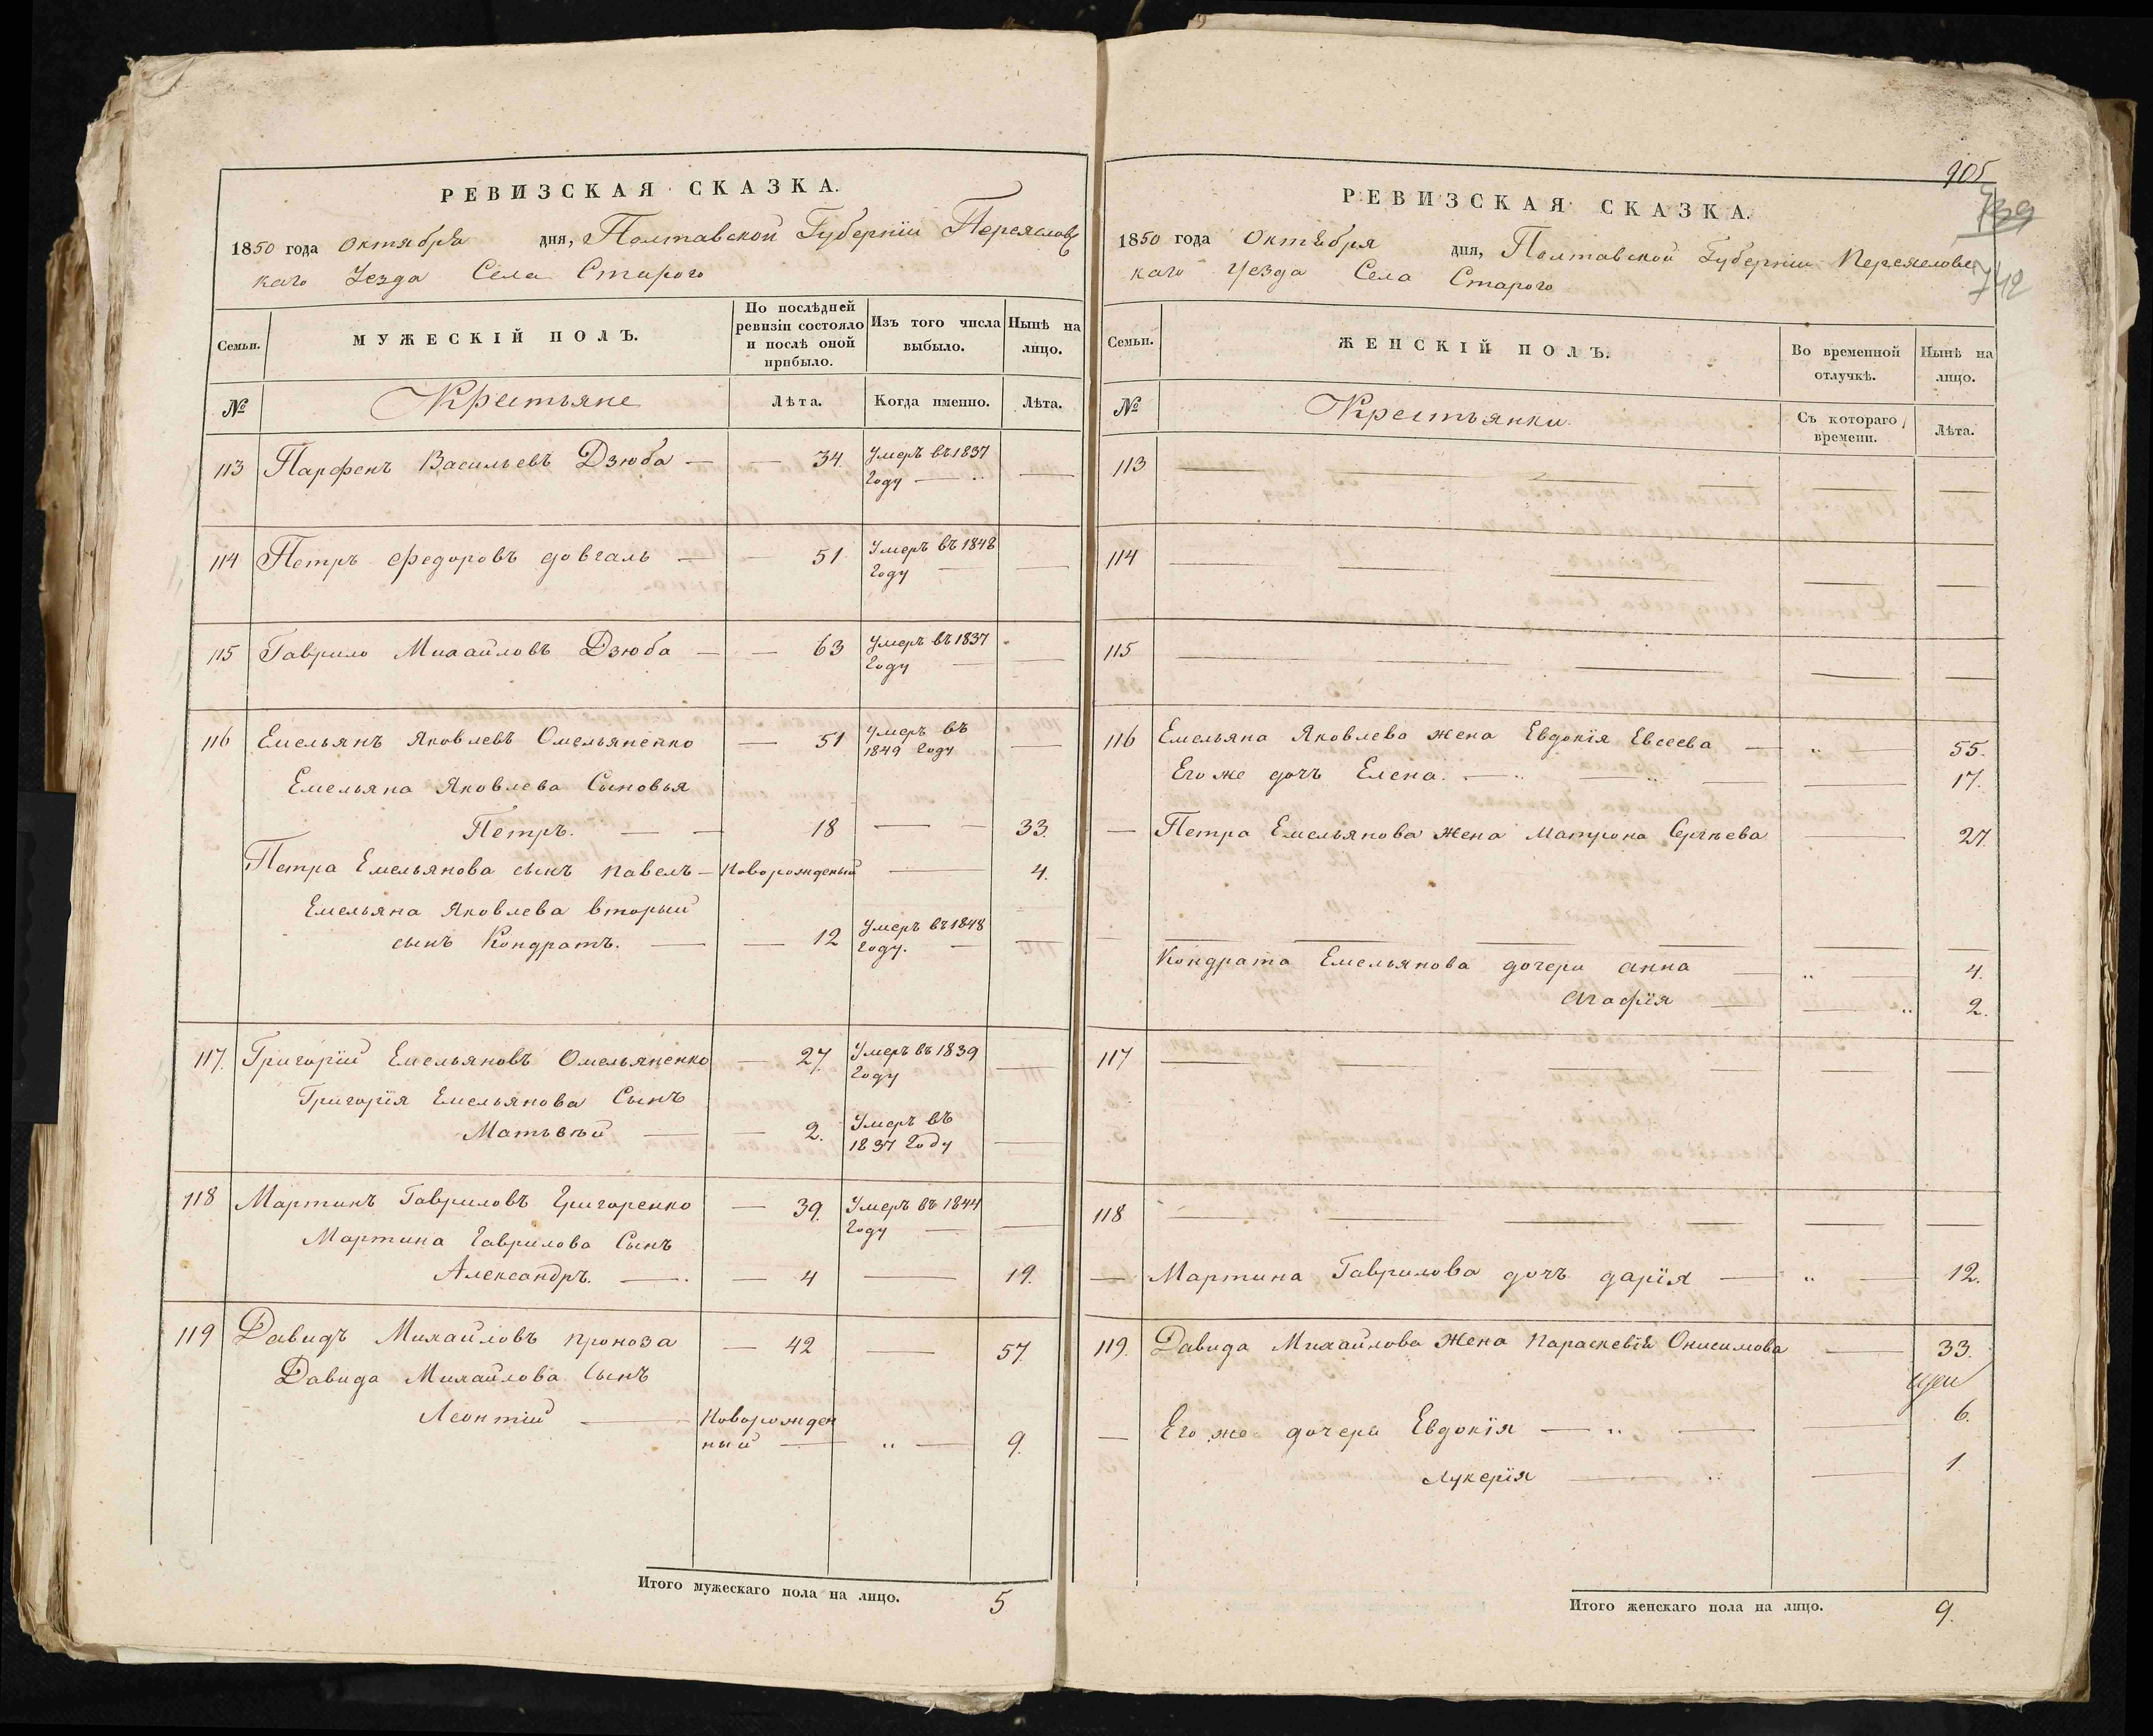 РЕВИЗСКАЯ СКАЗКА.
1850 года Октября дня, Полтавской Губерніи Переяслов
каго Уезда Села Старого
Семьи.
МУЖЕСКІЙ ПОЛЪ.
По послѣдней ревизіи состояло и послѣ оной прибыло.
Изъ того числа выбыло.
Нынѣ на лицо.
№
Крестьяне
Лѣта.
Когда именно.
Лѣта.
113 Парфенъ Васильевъ Дзюба — — 34. Умеръ въ 1837
Году — —
114 Петръ Федоровъ довгаль — — 51. Умеръ въ 1848
Году — —
115 Гаврило Михайловъ Дзюба — — 63 Умеръ въ 1837
Году — —
116 Емельянъ Яковлевъ Омельяненко — 51 Умеръ въ
1849 Году —
Емельяна Яковлева Сыновья
Петръ. — — 18 — — 33.
Петра Емельянова сынъ Павелъ — Новорожденый — 4.
Емельяна Яковлева вторый
сынъ Кондратъ. — — 12 Умеръ въ 1848
Году. — —
117. Григорій Емельяновъ Омельяненко — 27. Умеръ въ 1839
Году —
Григорія Емельянова Сынъ
Матьвѣй — — 2. Умеръ въ
1837 Году —
118 Мартинъ Гавриловъ Григоренко — 39. Умеръ въ 1844
Году — —
Мартина Гаврилова Сынъ
Александръ. — — 4 — 19.
119 Давидъ Михайловъ Проноза — 42 — 57.
Давида Михайлова Сынъ
Леонтій — Новорожден
ный — „ — 9.
Итого мужескаго пола на лицо. 5
905
739
742
РЕВИЗСКАЯ СКАЗКА.
1850 года Октября дня, Полтавской Губерніи Переясловс
каго Уезда Села Старого
Семьи.
ЖЕНСКІЙ ПОЛЪ.
Во временной отлучкѣ.
Нынѣ на лицо.
№
Крестьянки.
Съ котораго времени.
Лѣта.
113 — — — — — —
114 — — — — —
115 — — — — —
116 Емельяна Яковлева жена Евдокія Евсеева — „ — 55.
Его же дочь Елена. — „ — „ — — 17.
— Петра Емельянова жена Матрона Сергѣева — 27.
— — — — — —
Кондрата Емельянова дочери Анна — „ — 4.
Агафія — — „ 2.
117 — — — — — —
118 — — — — — —
— Мартина Гаврилова дочь дарія — „ — 12.
119. Давида Михайлова Жена Параскевія Онисимова — 33.
— Его же дочери Евдокія — „ — — 6.
Лукерія — „ — 1
Итого женскаго пола на лицо. 9.